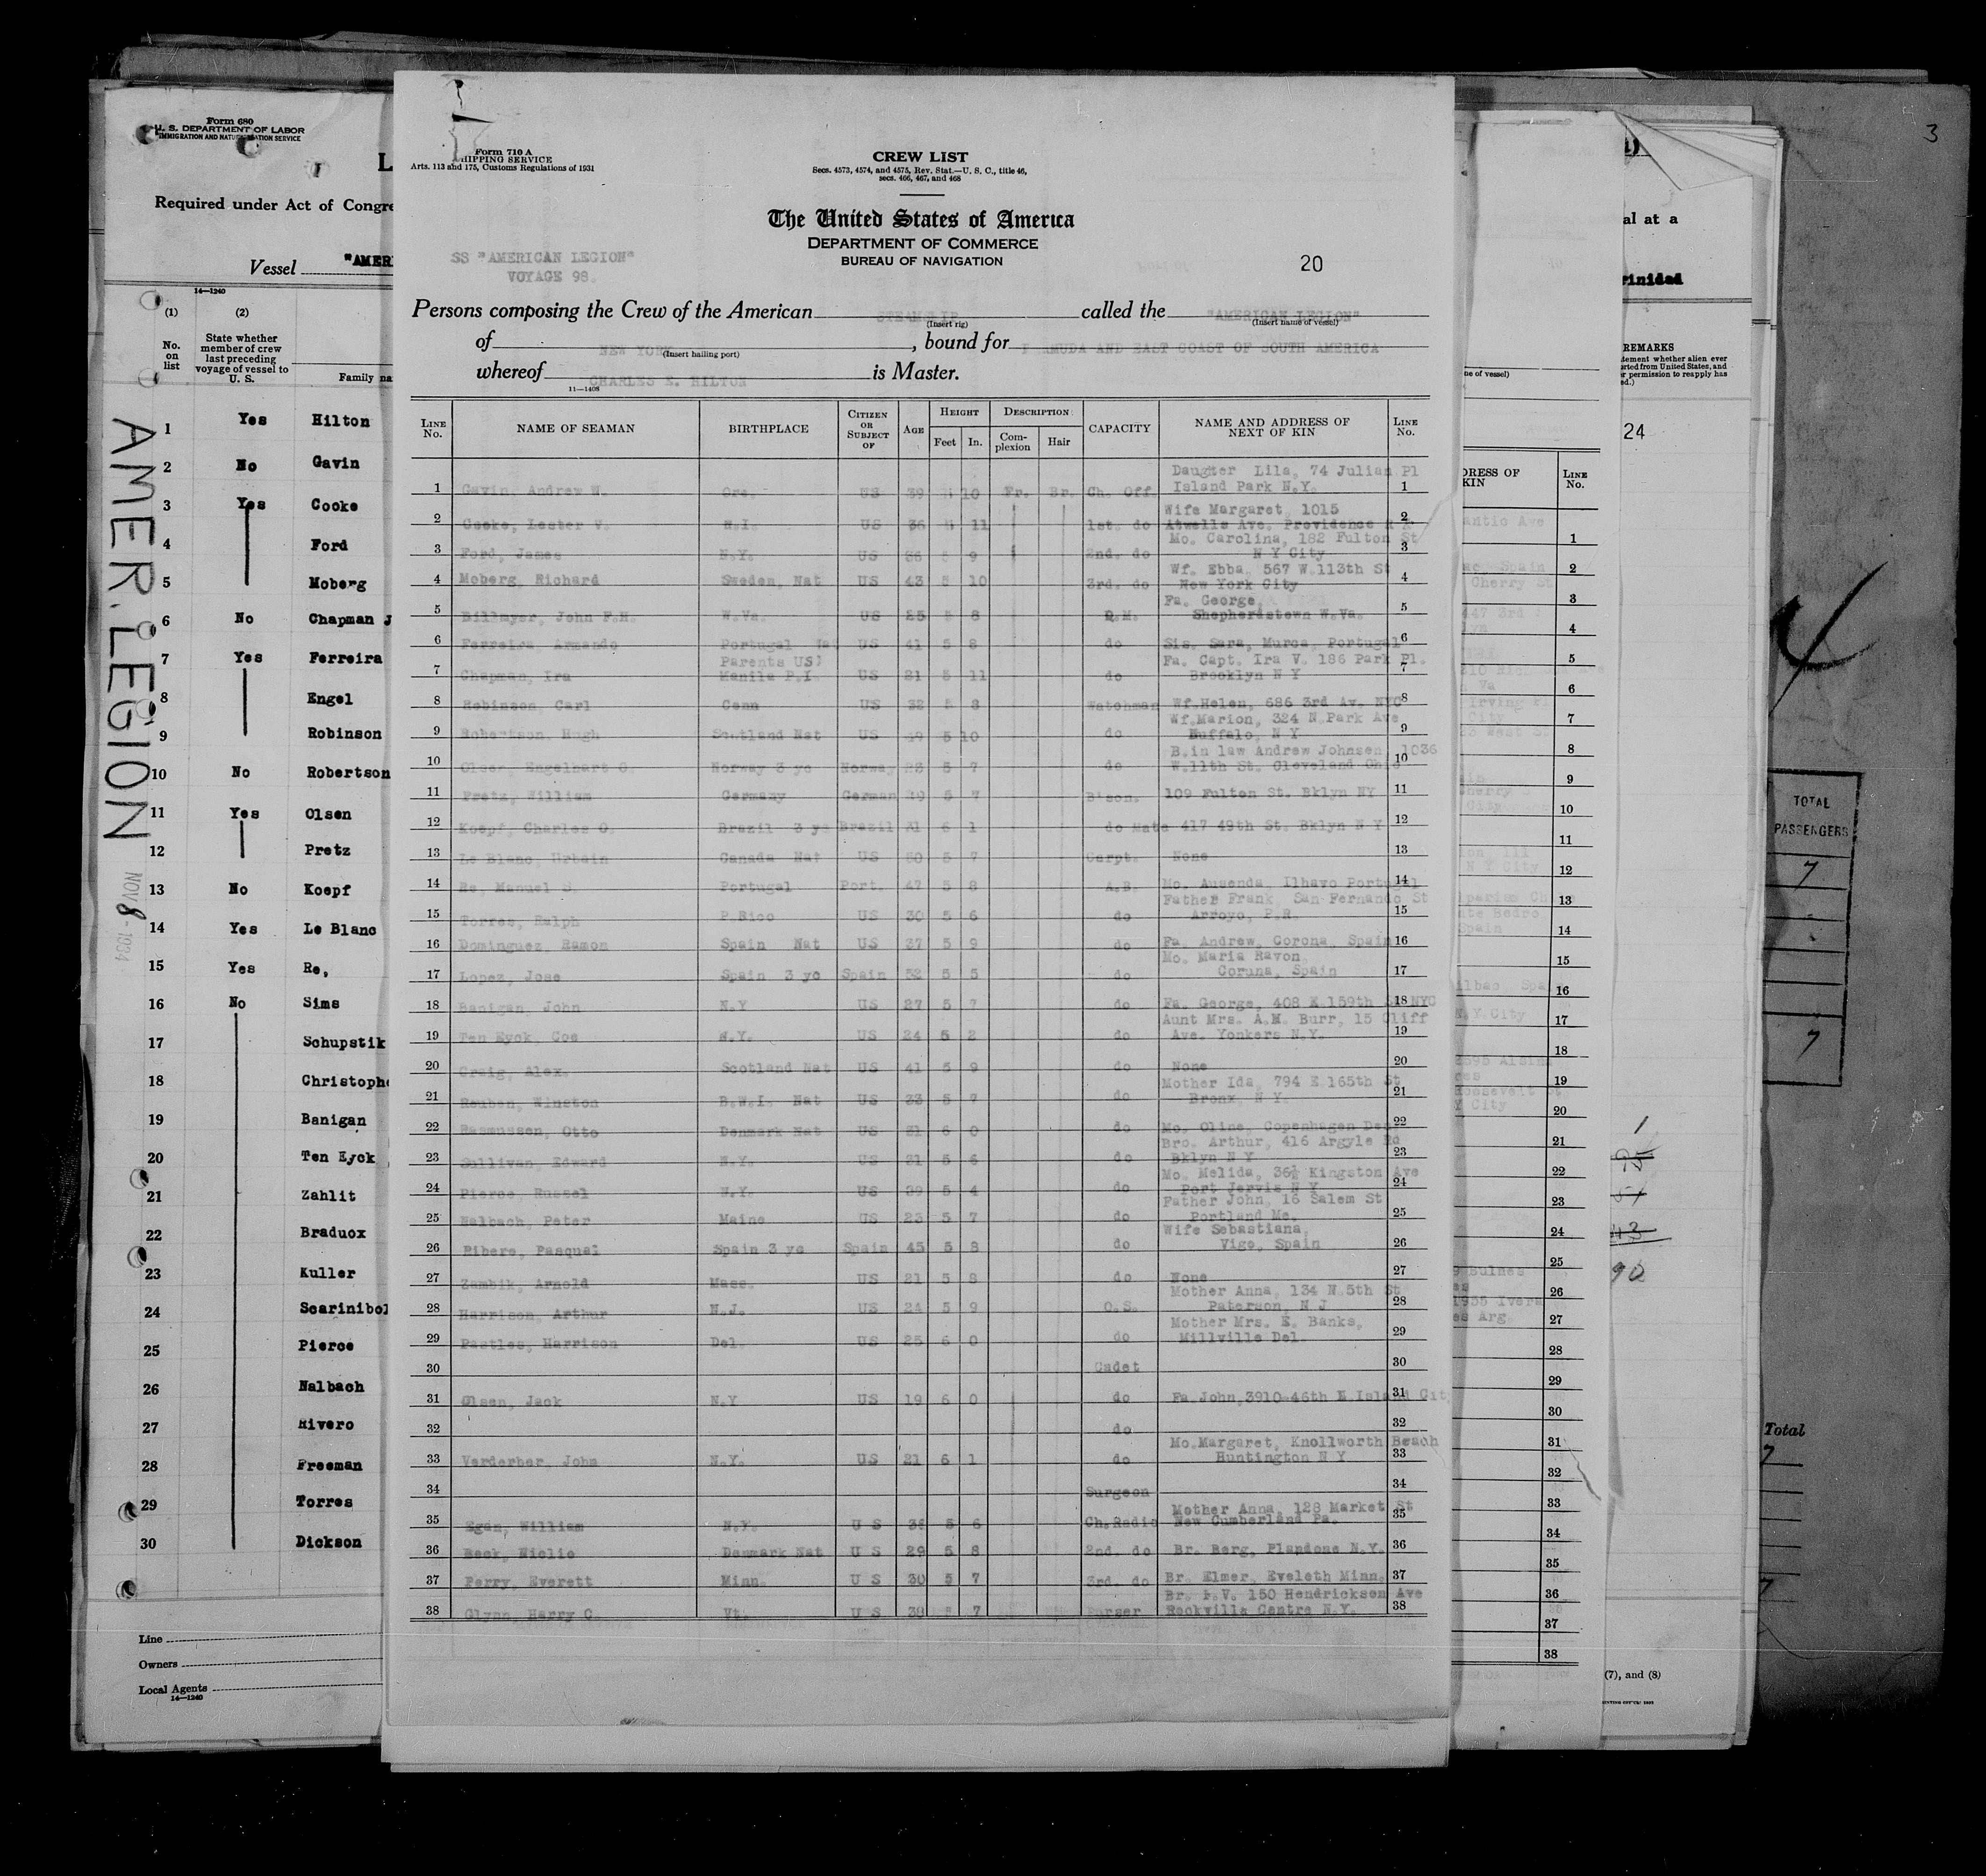 Form 680
U. S. DEPARTMENT OF LABOR
IMMIGRATION AND NATURALIZATION SERVICE
L
Required under Act of Congre
Vessel "AMER
14—1240
(1) (2)
No. on list
State whether member of crew last preceding voyage of vessel to U. S.
Family na
1 Yes Hilton
2 No Gavin
3 Yes Cooke
4 Ford
5 Moberg
6 No Chapman J
7 Yes Ferreira
8 Engel
9 Robinson
10 No Robertson
11 Yes Olsen
12 Pretz
13 No Koepf
14 Yes Le Blanc
15 Yes Re,
16 No Sims
17 Schupstik
18 Christophe
19 Banigan
20 Ten Eyck
21 Zahlit
22 Braduox
23 Kuller
24 Scarinibol
25 Pierce
26 Nalbach
27 Rivero
28 Freeman
29 Torres
30 Dickson
Line
Owners
Local Agents
14—1240
AMER. LEGION
NOV 8 - 1934
Form 710 A
SHIPPING SERVICE
Arts. 113 and 175, Customs Regulations of 1931
CREW LIST
Secs. 4573, 4574, and 4575, Rev. Stat.—U. S. C., title 46,
secs. 466, 467, and 468
The United States of America
DEPARTMENT OF COMMERCE
BUREAU OF NAVIGATION
SS "AMERICAN LEGION"
VOYAGE 98.
20
Persons composing the Crew of the American STEAMSHIP called the "AMERICAN LEGION"
(Insert rig) (Insert name of vessel)
of NEW YORK, bound for BERMUDA AND EAST COAST OF SOUTH AMERICA
(Insert hailing port)
whereof CHARLES E. HILTON is Master.
11—1408
LINE No. NAME OF SEAMAN BIRTHPLACE CITIZEN OR SUBJECT OF AGE HEIGHT Feet In. DESCRIPTION Complexion Hair CAPACITY NAME AND ADDRESS OF NEXT OF KIN LINE No.
Daughter Lila, 74 Julian Pl
1 Gavin, Andrew W. Ore. US 39 10 Fr. Br. Ch. Off. Island Park N.Y. 1
Wife Margaret, 1015
2 Cooke, Lester V. R.I. US 36 11 1st. do Atwells Ave. Providence R I 2
Mo. Carolina, 182 Fulton St
3 Ford, James N.Y. US 36 5 9 2nd. do N Y City 3
Wf. Ebba, 567 W.113th St
4 Moberg, Richard Sweden, Nat US 43 5 10 3rd. do New York City 4
Fa. George,
5 Billmyer, John F.H. W.Va. US 25 5 8 Q.M. Shepherdstown W.Va. 5
6 Ferreira, Armando Portugal Nat US 41 5 8 do Sis. Sara, Murca, Portugal 6
Parents US) Fa. Capt. Ira V. 186 Park Pl.
7 Chapman, Ira Manila P.I. US 21 5 11 do Brooklyn N Y 7
8 Robinson, Carl Conn US 32 5 8 Watchman Wf.Helen, 686 3rd Av. NYC 8
Wf.Marion, 324 N.Park Ave
9 Robertson, Hugh Scotland Nat US 49 5 10 do Buffalo, N Y 9
B.in law Andrew Johnsen, 1036
10 Olsen, Engelhart O. Norway 3 yc Norway 28 5 7 do W.11th St. Cleveland Ohio 10
11 Pretz, William Germany German 49 5 7 B'tson. 109 Fulton St. Bklyn NY 11
12 Koepf, Charles O. Brazil 3 yc Brazil 31 6 1 do Mate 417 49th St. Bklyn N Y 12
13 Le Blanc, Urbain Canada Nat US 30 5 7 Carpt. None 13
14 Re, Manuel S. Portugal Port. 47 5 8 A.B. Mo. Ausenda, Ilhavo Portugal 14
Father Frank, San Fernando St
15 Torres, Ralph P.Rico US 30 5 6 do Arroyo, P.R. 15
16 Dominguez, Ramon Spain Nat US 37 5 9 do Fa. Andrew, Corona, Spain 16
Mo. Maria Ravon,
17 Lopez, Jose Spain 3 yc Spain 52 5 5 do Coruna, Spain 17
18 Banigan, John N.Y US 27 5 7 do Fa. George, 408 E 159th St NYC 18
Aunt Mrs. A.M. Burr, 15 Cliff
19 Ten Eyck, Coe N.Y. US 24 5 2 do Ave. Yonkers N.Y. 19
20 Craig, Alex. Scotland Nat US 41 5 9 do None 20
Mother Ida, 794 E.165th St
21 Reuben, Winston B.W.I. Nat US 33 5 7 do Bronx, N Y. 21
22 Rasmussen, Otto Denmark Nat US 31 6 0 do Mo. Oline, Copenhagen Den 22
Bro. Arthur, 416 Argyle Rd
23 Sullivan, Edward N.Y. US 31 5 6 do Bklyn N Y 23
Mo. Melida, 36½ Kingston Ave
24 Pierce, Russel N.Y. US 39 5 4 do Port Jervis N Y 24
Father John, 16 Salem St
25 Nalbach, Peter Maine US 23 5 7 do Portland Me. 25
Wife Sebastiana,
26 Ribero, Pasqual Spain 3 yc Spain 45 5 8 do Vigo, Spain 26
27 Zambik, Arnold Mass. US 21 5 8 do None 27
Mother Anna, 134 N.5th St
28 Harrison, Arthur N.J. US 24 5 9 O.S. Paterson, N J 28
Mother Mrs. E. Banks,
29 Pastles, Harrison Del. US 25 6 0 do Millville Del. 29
30 Cadet 30
31 Olsen, Jack N.Y US 19 6 0 do Fa.John,3910-46th L.Island Cit 31
32 do 32
Mo.Margaret, Knollworth Beach
33 Verderber, John N.Y. US 21 6 1 do Huntington N Y 33
34 Surgeon 34
Mother Anna, 128 Market St
35 Egan, William N.Y. U S 36 5 6 Ch.Radio New Cumberland Pa. 35
36 Beck, Nielie Denmark Nat U S 29 5 8 2nd. do Br. Berg, Plandome N.Y. 36
37 Perry, Everett Minn. U S 30 5 7 3rd. do Br. Elmer, Eveleth Minn. 37
Br. F.V. 150 Hendrickson Ave
38 Glynn, Harry C Vt. U S 38 5 7 Purser Rockville Centre N.Y. 38
3
al at a
rinidad
REMARKS
24
DRESS OF KIN LINE No.
antic Ave 1
Spain 2
Cherry St 3
447 3rd 4
5
Va 6
Irving Pl
City 7
8
9
City 10
11
N Y City 12
13
Spain 14
15
ilbao, Spa 16
N.Y.City 17
18
2595 Alsina 19
Roosevelt St
Y City 20
21
22
23
24
Bulnes 25
26
1955 Ivera
es Arg. 27
28
29
30
31
32
33
34
35
36
37
38
1
43
90
(7), and (8)
TOTAL PASSENGERS
7
7
Total
7
7